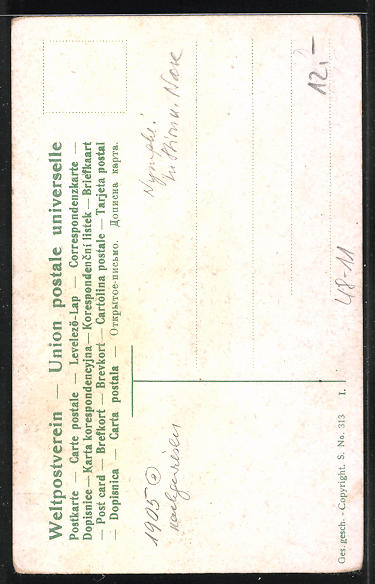 Weltpostverein — Union postale universelle
Postkarte — Carte postale — Levelező-Lap — Correspondenzkarte —
Dopisnice — Karta korespondencyjna — Korespondenční listek — Briefkaart
— Post card — Brefkort — Brevkort — Cartolina postale — Tarjeta postal
— Dopisnica — Carta postala — Открытое письмо. Дописна карта.
Nymphe:
12,-
48-11
1905
nachgewiesen
Ges. gesch. - Copyright. S. No. 313 I.